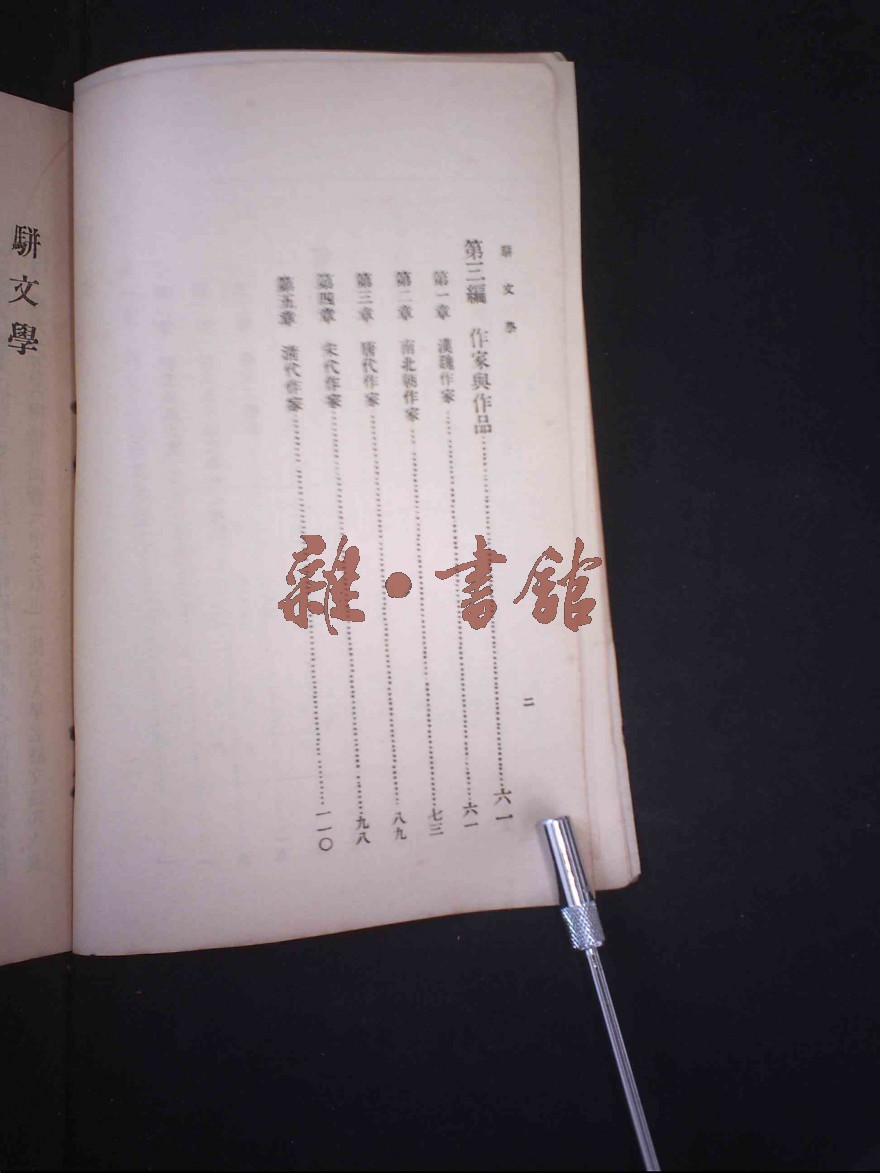 駢文學
第三編　作家與作品……六一
第一章　漢魏作家……六一
第二章　南北朝作家……七三
第三章　唐代作家……八九
第四章　宋代作家……九八
第五章　清代作家……一一〇
二
駢文學
雜·書館